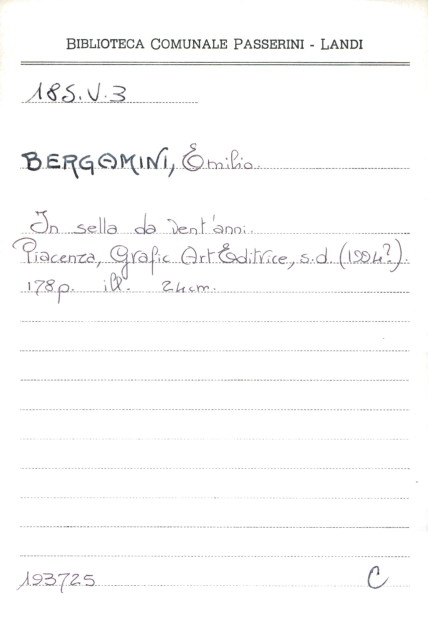 BIBLIOTECA COMUNALE PASSERINI - LANDI
18S.V.3
BERGAMINI, Emilio.
In sella da vent'anni.
Piacenza, Grafic Art Editrice, s.d. (1994?).
178p. ill. 24cm.
193725 C